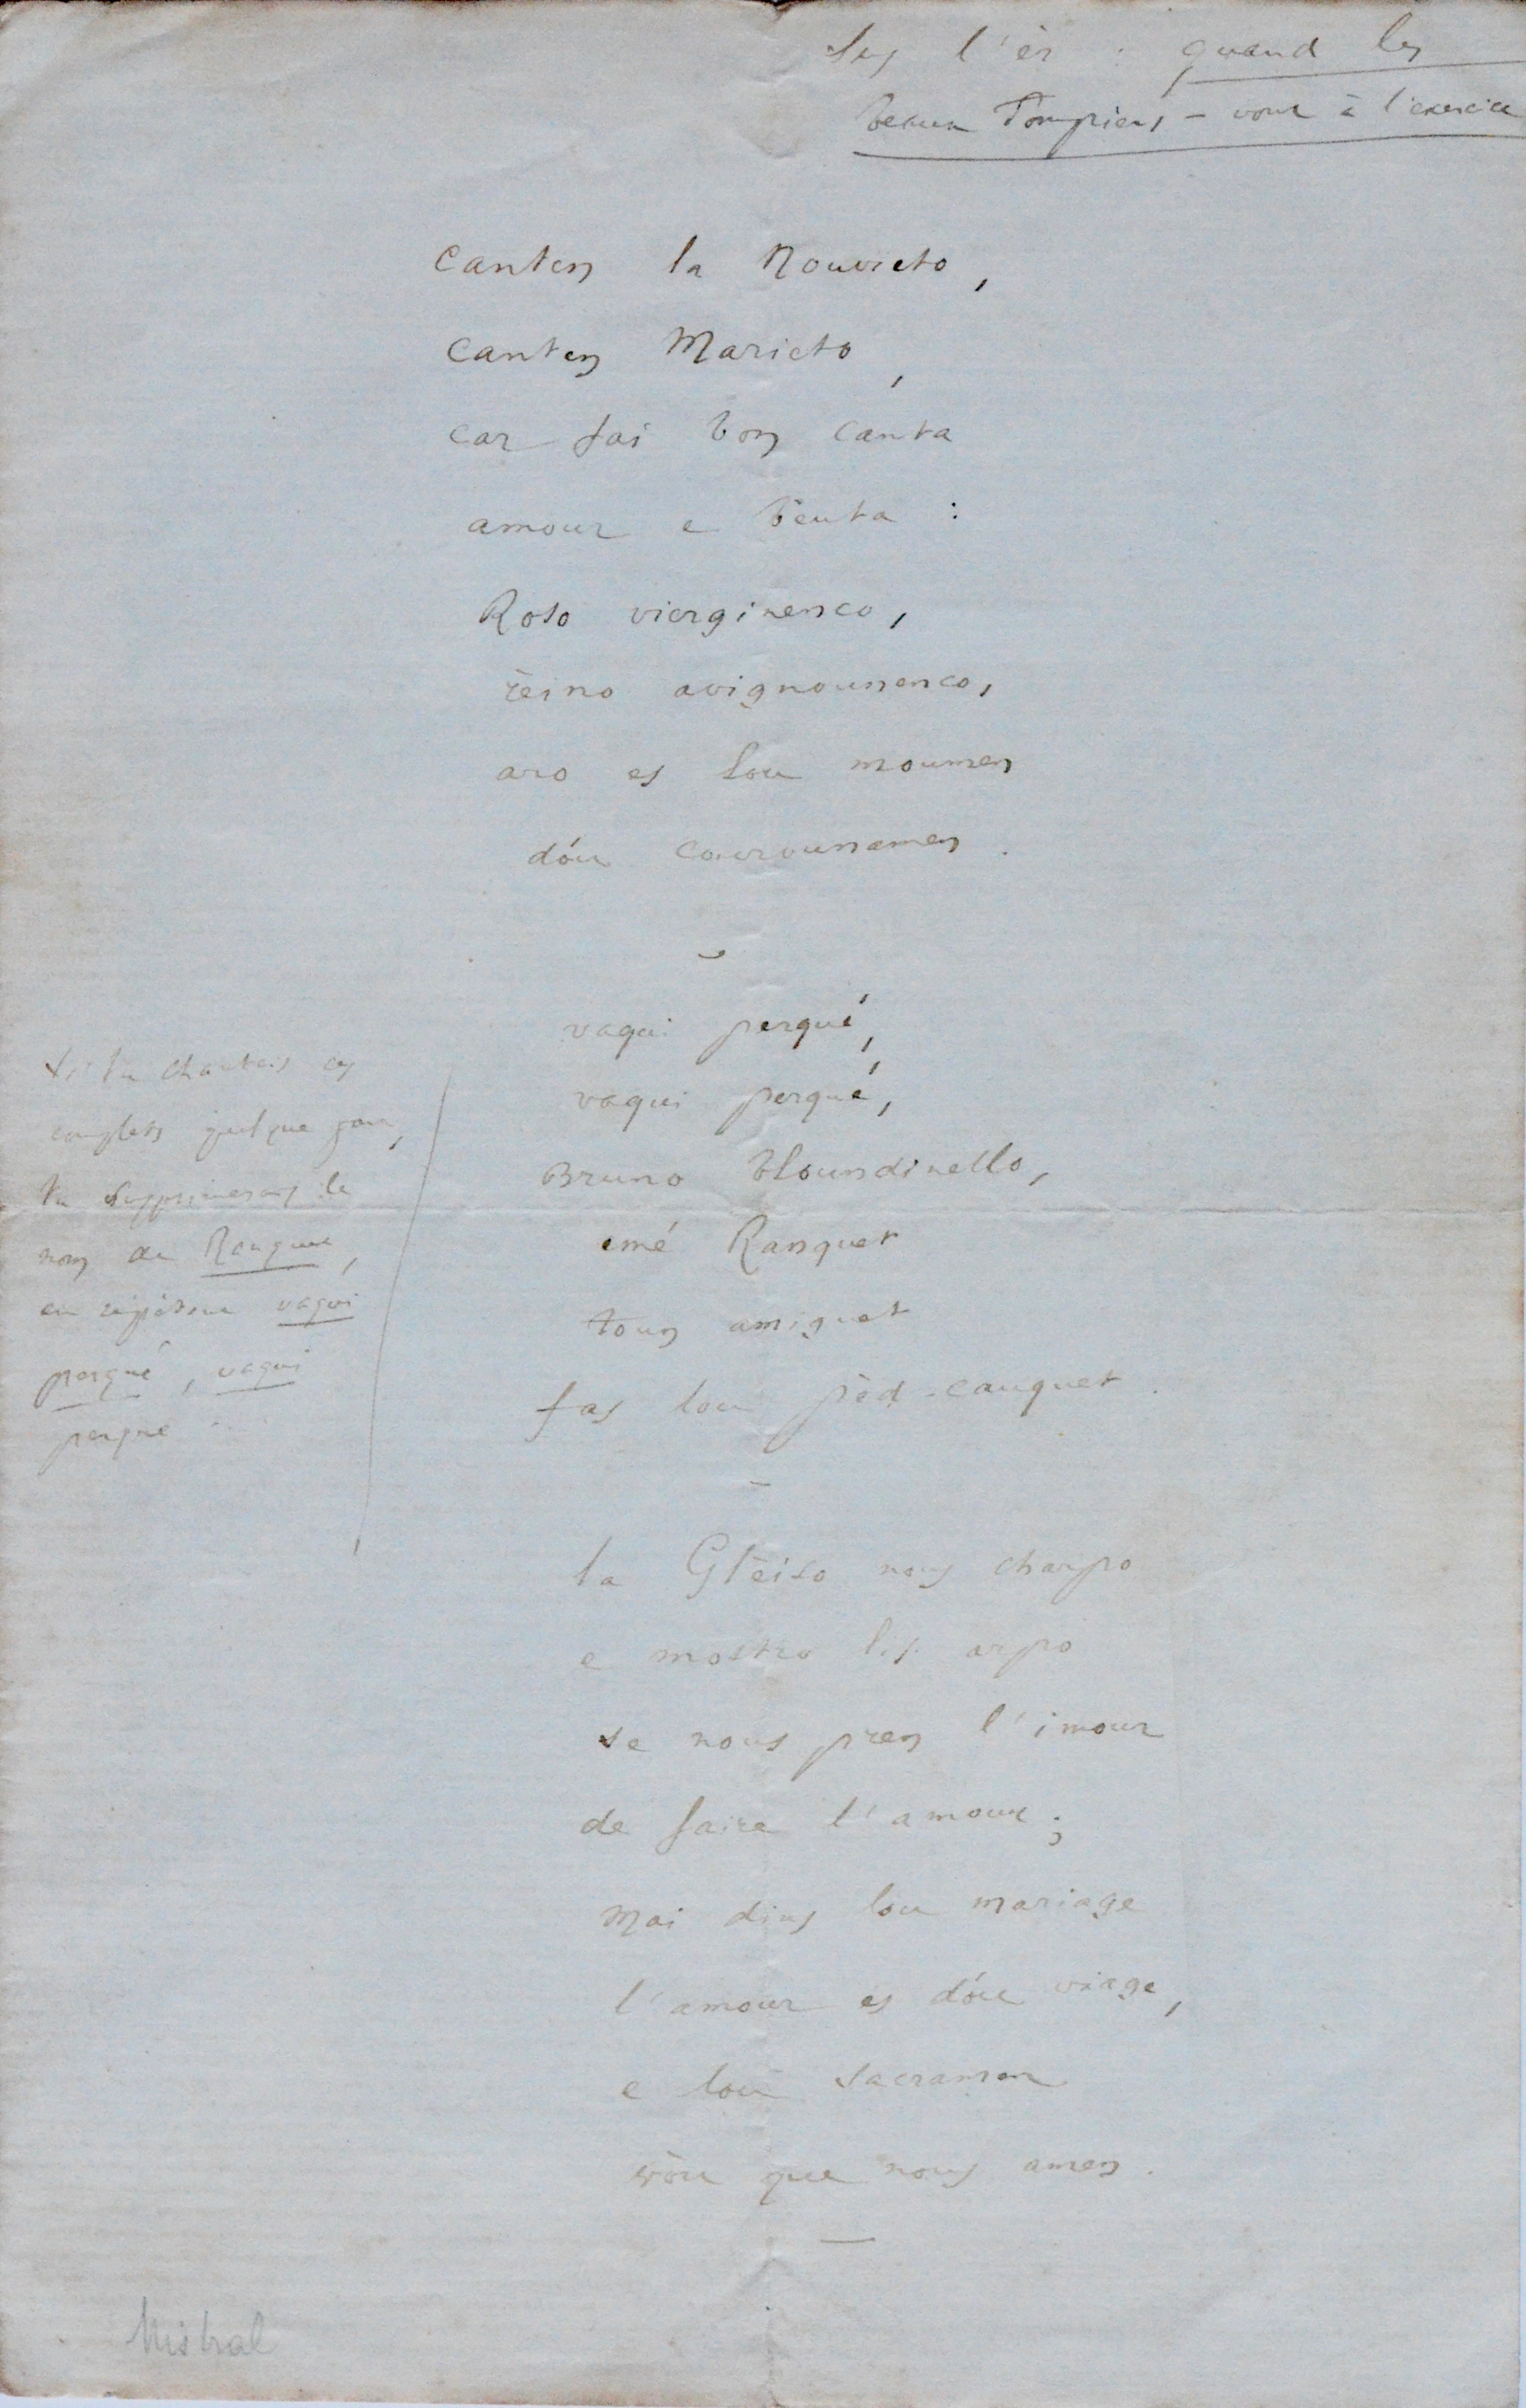 Sus l'èr : quand les
beaux Pompiers – vont à l'exercice
Canten la Nouvieto,
Canten Marieto,
car fai bon canta
amour e bèuta :
Roso vierginenco,
rèino avignounenco,
aro es lou moumen
dóu courounamen.
vaqui perqué,
vaqui perqué,
Bruno bloundinello,
emé Ranquet
toun amiquet
fas lou pèd-cauquet.
la Glèiso nous charpo
e mostro lis arpo
se nous pren l'imour
de faire l'amour ;
Mai dins lou mariage
l'amour es dóu viage,
e lou sacramen
vòu que nous amen.
si tu chantais ces
couplets quelque jour,
tu supprimerais le
nom de Ranquet,
en répétant vaqui
perqué, vaqui
perqué ...
Mistral